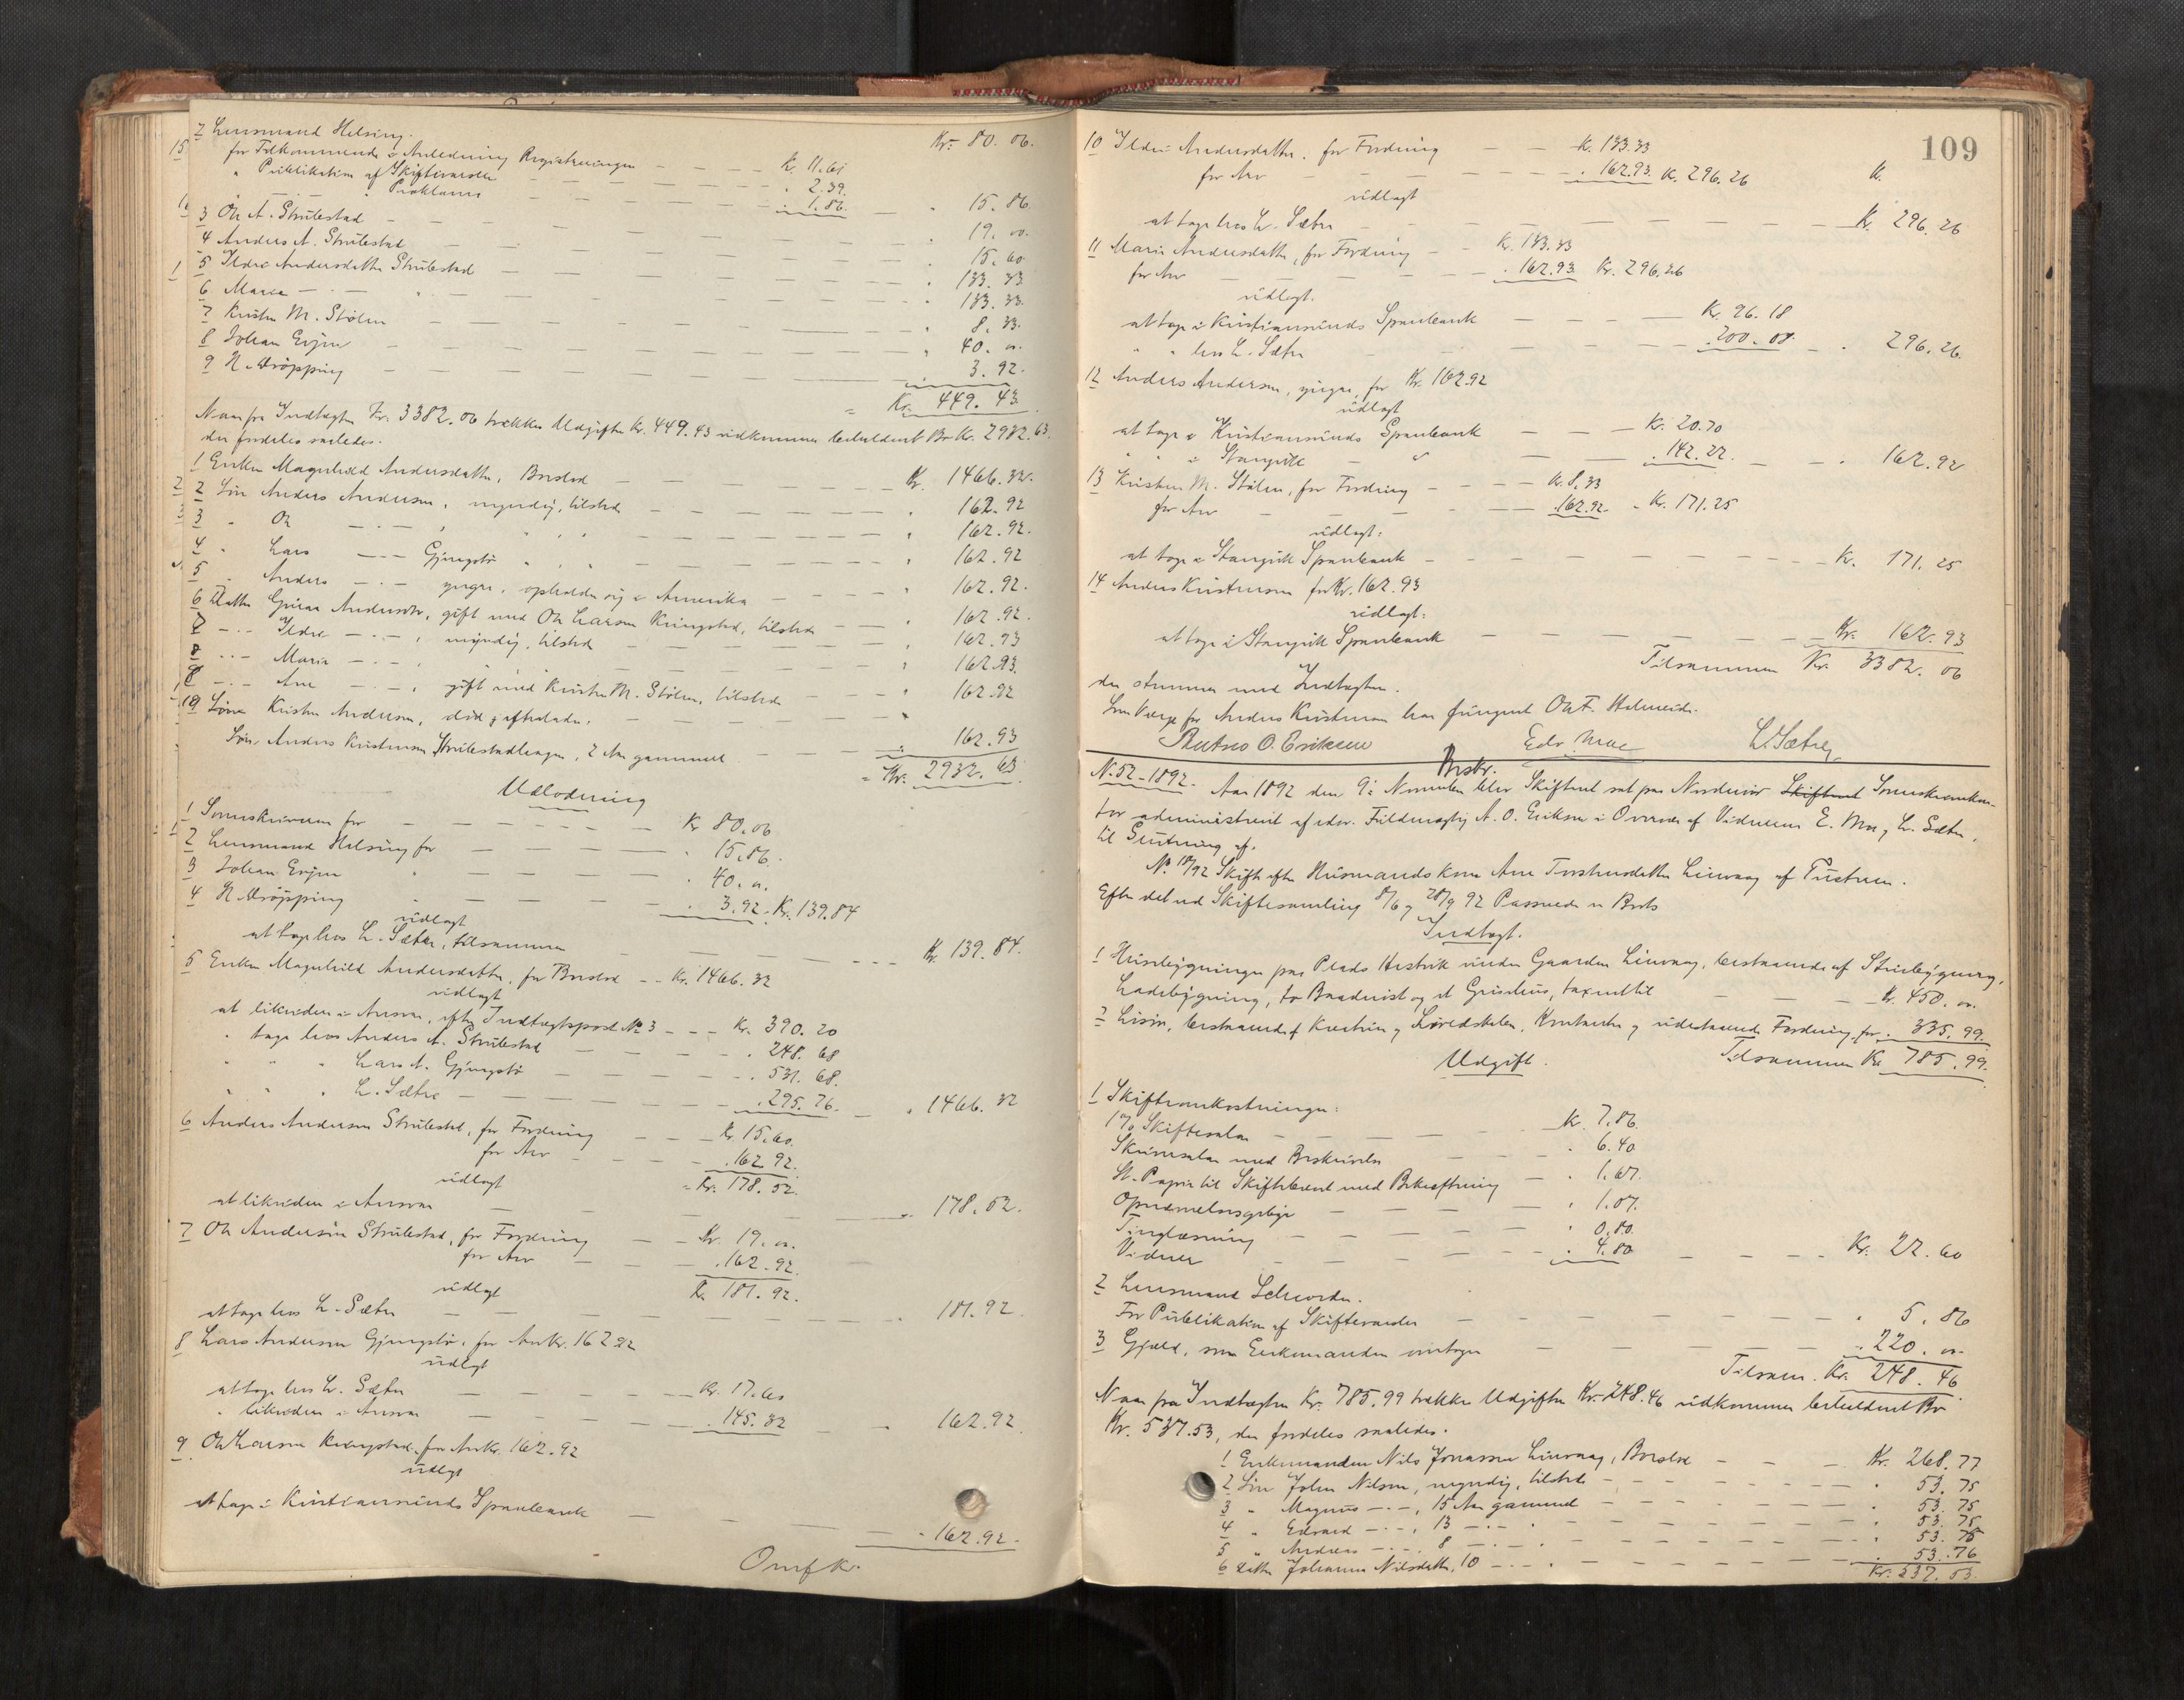 Kr. 80.06.
2 Lensmand Helsing.
for Tilkommende i Anledning Registreringen — — — Kr. 11.61
" Publikation af Skiftevarsler — — — " 2.39.
" — " — " Proklama — — — " 1.86. — " 15.86.
3 Ole A. Strülestad — — — " 19.00.
4 Anders A. Strülestad — — — " 15.60
5 Ildri Andersdatter Strülestad — — — " 133.33.
6 Marie — " — — — " 133.33.
7 Kristen M. Stølen — — — " 8.33.
8 Johan Evjen — — — " 40.00.
9 N. Drøpping — — — " 3.92.
= Kr. 449.43.
Naar fra Indtægten Kr. 3382.06 trækkes Udgiften Kr. 449.43 udkommer beholdent Bo Kr. 2932.63.
der fordeles saaledes.
1 Enken Magnhild Andersdatter, Boslod — — — Kr. 1466.32.
2 Søn Anders Andersen, myndig, tilstede — — — " 162.92
3 " Ole — " — " " " — — — " 162.92.
4 " Lars — " — Gjengstø " " — — — " 162.92
5 " Anders — " — yngre, opholder sig i Amerika — — — " 162.92.
6 Datter Andersdtr, gift med Ole Larsen Kringstad, tilstede — — " 162.92.
7 — " — Ildri — " — , myndig, tilstede — — — " 162.93
8 — " — Marie — " — " — — — " 162.93.
9 — " — Ane — " — , gift med Kristen M. Stølen, tilstede — — " 162.92
10 Søn Kristen Andersen, død, efterladt:
Søn, Anders Kristensen Strülestadhagen, 2 Aar gammel — — " 162.93
= Kr. 2932.63.
Udlodning
1 Sorenskriveren for — — — Kr. 80.06
2 Lensmand Helsing for — — — " 15.86.
3 Johan Evjen " — — — " 40.00.
4 N. Drøpping " — — — " 3.92 = Kr. 139.84
udlagt
at tage hos L. Sæter, tilsammen — — — Kr. 139.84.
5 Enken Magnhild Andersdatter, for Boslod — — Kr. 1466.32
udlagt
at likvidere i Ansvar, efter Indtægtspost No 3 — — — Kr. 390.20
" tage hos Anders A. Strülestad — — — " 248.68
" " " Lars A. Gjengstø — — — " 531.68.
" " " L. Sætre — — — " 295.76. — " 1466.32
6 Anders Andersen Strülestad, for Fordring — — — Kr. 15.60.
for Arv — — — " 162.92.
udlagt = Kr. 178.52.
at likvidere i Ansvar — — — " 178.52.
7 Ole Andersen Strülestad, for Fordring — — Kr. 19.00.
for Arv — — — " 162.92.
udlagt Kr. 181.92.
at tage hos L. Sæter — — — " 181.92.
8 Lars Andersen Gjengstø, for Arv Kr. 162.92
udlagt
at tage hos L. Sæter — — — Kr. 17.60
" likvidere i Ansvar — — — " 145.32 " 162.92
9 Ole Larsen Kringstad, for Arv Kr. 162.92
udlagt
at tage i Kristiansunds Sparebank — — — " 162.92.
109
10 Ildri Andersdatter, for Fordring — — Kr. 133.33
for Arv — — — " 162.93. Kr. 296.26 Kr.
udlagt
at tage hos L. Sæter — — — Kr. 296.26
11 Marie Andersdatter, for Fordring — Kr. 133.33
for Arv — — — " 162.93. Kr. 296.26
udlagt.
at tage i Kristiansunds Sparebank — — — Kr. 96.18
" " hos L. Sæter — — — " 200.08. — " 296.26.
12 Anders Andersen, yngre, for Kr. 162.92
udlagt
at tage i Kristiansunds Sparebank — — — Kr. 20.70
" " i Stangvik — " — — — " 142.22. — — " 162.92
13 Kristen M. Stølen, for Fordring — — — Kr. 8.33
for Arv — — — " 162.92. = Kr. 171.25
udlagt:
at tage i Stangvik Sparebank — — — Kr. 171.25
14 Anders Kristensen for Kr. 162.93
udlagt:
at tage i Stangvik Sparebank — — — Kr. 162.93
Tilsammen Kr. 3382.06
der stemmer med Indtægten.
Som Værge for Anders Kristensen har fungeret Ole F. Holmeide.
O. Eriksen Edv. Moe L. Sætre
Beskr.
No. 52-1892. Aar 1892 den 9de November blev Skifteret sat paa Nordmør Skifteret Sorenskriverkon-
tor administreret af edsv. Fuldmægtig A. O. Eriksen i Overvær af Vidnerne E. Moe og L. Sæter,
til Slutning af.
No 18/92 Skifte efter Husmandskone Ane Torstensdatter Leirvaag af Tustren.
Efter det ved Skiftesamling 8/6 og 28/9 92 Passerede er Boets
Indtægt.
1 Husebygninger paa Plads Hestvik under Gaarden Leirvaag, bestaaende af Stuebygning,
Ladebygning, to Baadnøst og et Grisehus, taxeret til — — — Kr. 450.00.
2 Løsøre, bestaaende af Kreaturer og Løvredskaber, Kontanter og udestaaende Fordring, for " 335.99.
Tilsammen Kr. 785.99.
Udgift.
1 Skifteomkostninger:
1% Skiftesalær — — — Kr. 7.86.
Skriversalær med Beskrivelse — — — " 6.40
St. Papir til Skiftebrevet med Bekræftning — " 1.67.
Opnævnelsesgebyr — — — " 1.07.
Tinglæsning — — — " 0.80.
Vidner — — — " 4.80 — — — Kr. 22.60
2 Lensmand
For Publikation af Skiftevarsler — — — " 5.86
3 Gjæld, som Enkemanden overtager — — — " 220.00
Tilsam. Kr. 248.46.
Naar fra Indtægten Kr. 785.99 trækkes Udgiften Kr. 248.46 udkommer beholdent Bo
Kr. 537.53, der fordeles saaledes.
1 Enkemanden Nils Jonassen Leirvaag, Boslod — — — Kr. 268.77
2 Søn John Nilsen, myndig, tilstede — — — " 53.75
3 " Magnus — " — , 15 Aar gammel — — — " 53.75
4 " Edvard — " — , 13 — " — " — — — " 53.75
5 " Andreas — " — , 8 — " — " — — — " 53.75
6 Datter Johanna Nilsdatter, 10 — " — " — — — " 53.76
Kr. 537.53.